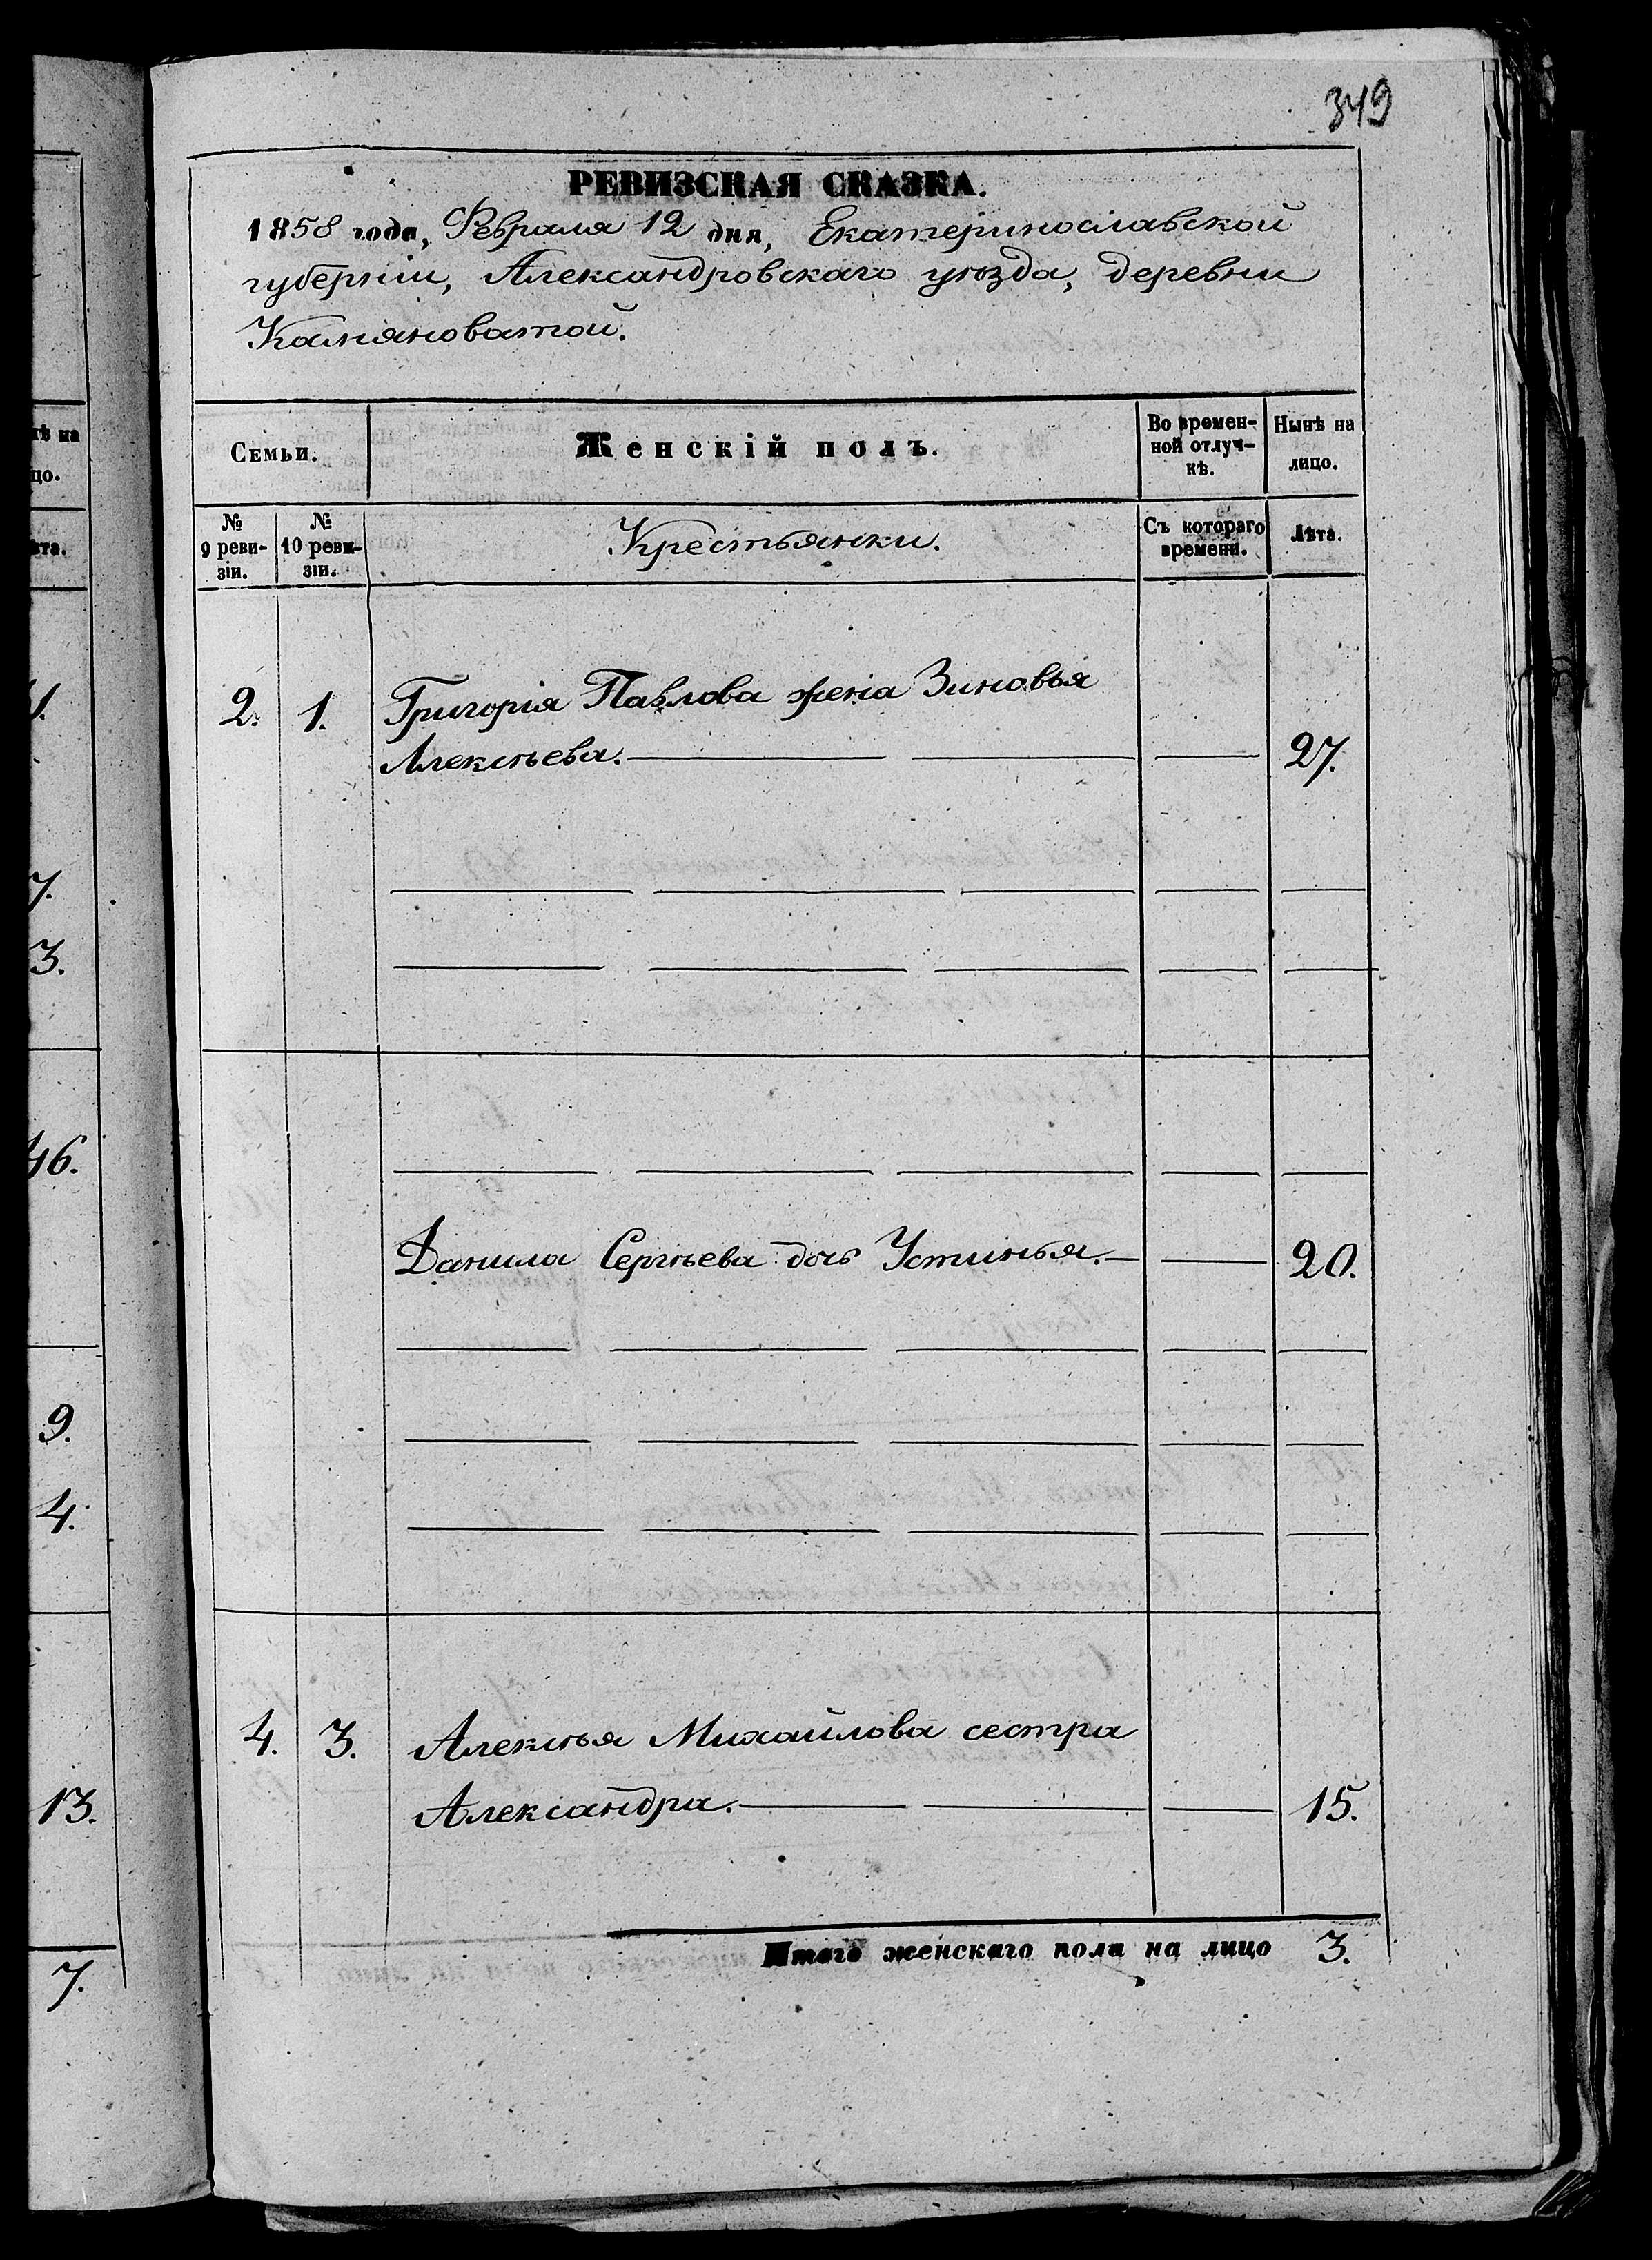 349
РЕВИЗСКАЯ СКАЗКА.
1858 года, Февраля 12 дня, Екатеринославской
губерніи, Александровскаго уѣзда, деревни
Камяноватой.
Семьи.
Женскій полъ.
Во времен-
ной отлуч-
кѣ.
Нынѣ на
лицо.
№
9 реви-
зіи.
№
10 реви-
зіи.
Крестьянки.
Съ котораго
времени.
Лѣта.
2. 1. Григорія Павлова жена Зиновья
Алексѣева. 27.
Данила Сергѣева дочь Устинья. 20.
4. 3. Алексѣя Михайлова сестра
Александра. 15.
Итого женскаго пола на лицо 3.
ѣ на
цо.
ѣта.
1.
7.
3.
46.
9.
4.
13.
7.